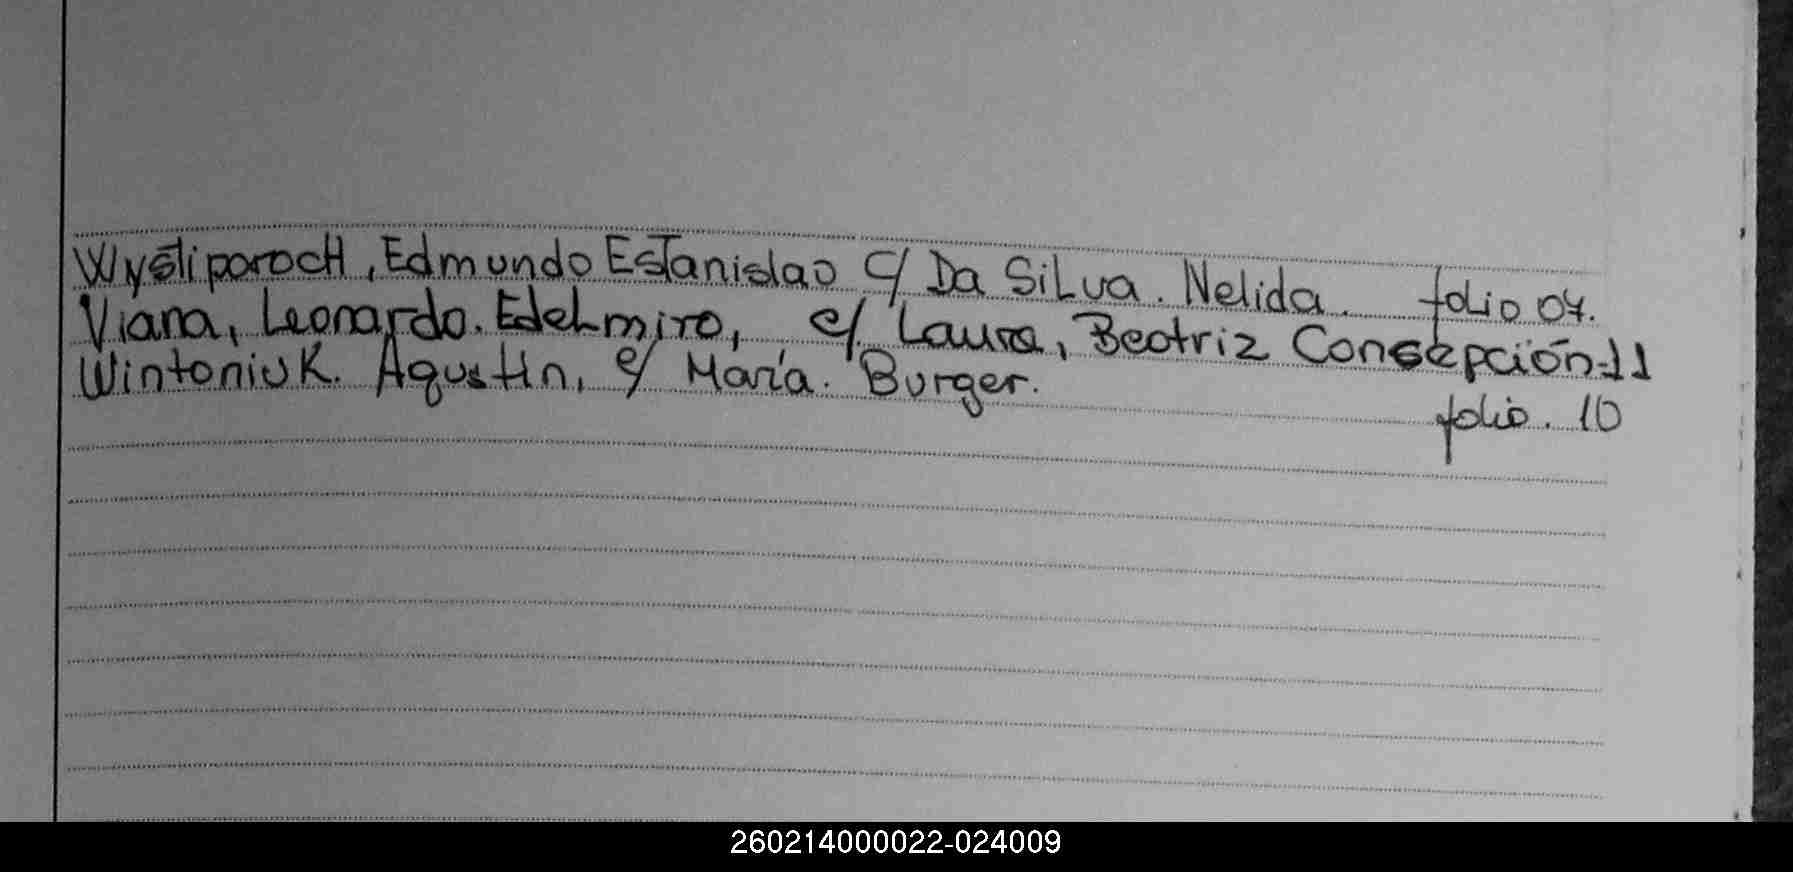 Wystiporoch, Edmundo Estanislao c/ Da Silva. Nelida. folio 07.
Viana, Leonardo. Edelmiro, c/ Laura, Beatriz Concepción-11
Wintoniuk. Agustin, c/ María. Burger.
folio. 10
260214000022-024009